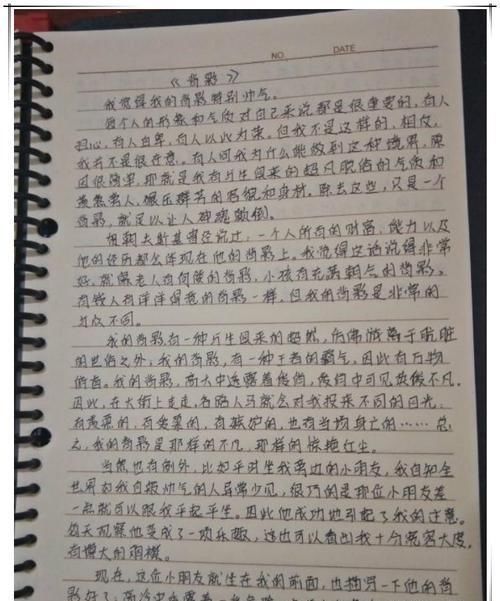 NO. DATE
《背影》
我觉得我的背影特别帅气。
每个人的形象和气质对自己来说都是很重要的，有人
担心，有人自卑，有人以此为荣。但我不是这样的，相反，
我并不是很在意。有人问我为什么能做到这种境界，原
因很简单，那就是我有与生俱来的超凡脱俗的气质和
羡煞旁人，碾压群芳的容貌和身材。除去这些，只是一个
背影，就足以让人神魂颠倒。
他的经历都会体现在他的背影上。我觉得这话说得非常
好，就像老人有佝偻的背影，小孩有充满朝气的背影，
有钱人有洋洋得意的背影一样，但我的背影是非常的
与众不同。
我的背影有一种与生俱来的超然，仿佛游离于肮脏
的世俗之外，我的背影，有一种王者的霸气，因此有万物
俯首。我的背影，高大中透露着俊俏，俊俏中可见放傲不凡。
因此，在大街上走走，各路人马就会对我投来不同的目光，
有羡慕的，有爱慕的，有嫉妒的，也有当场身亡的……总
之，我的背影是那样的不凡，那样的惊艳红尘。
当然也有例外，比如平时坐我旁边的小朋友，我自知全
世界如我自般帅气的人异常少见，很巧的是那位小朋友差
一点就可以跟我平起平坐。因此他成功地引起了我的注意。
每天观察他变成了一项乐趣，这也可以看出我十分宽容大度，
有博大的胸襟。
现在，这位小朋友就坐在我的前面，也描写一下他的背
影好了：